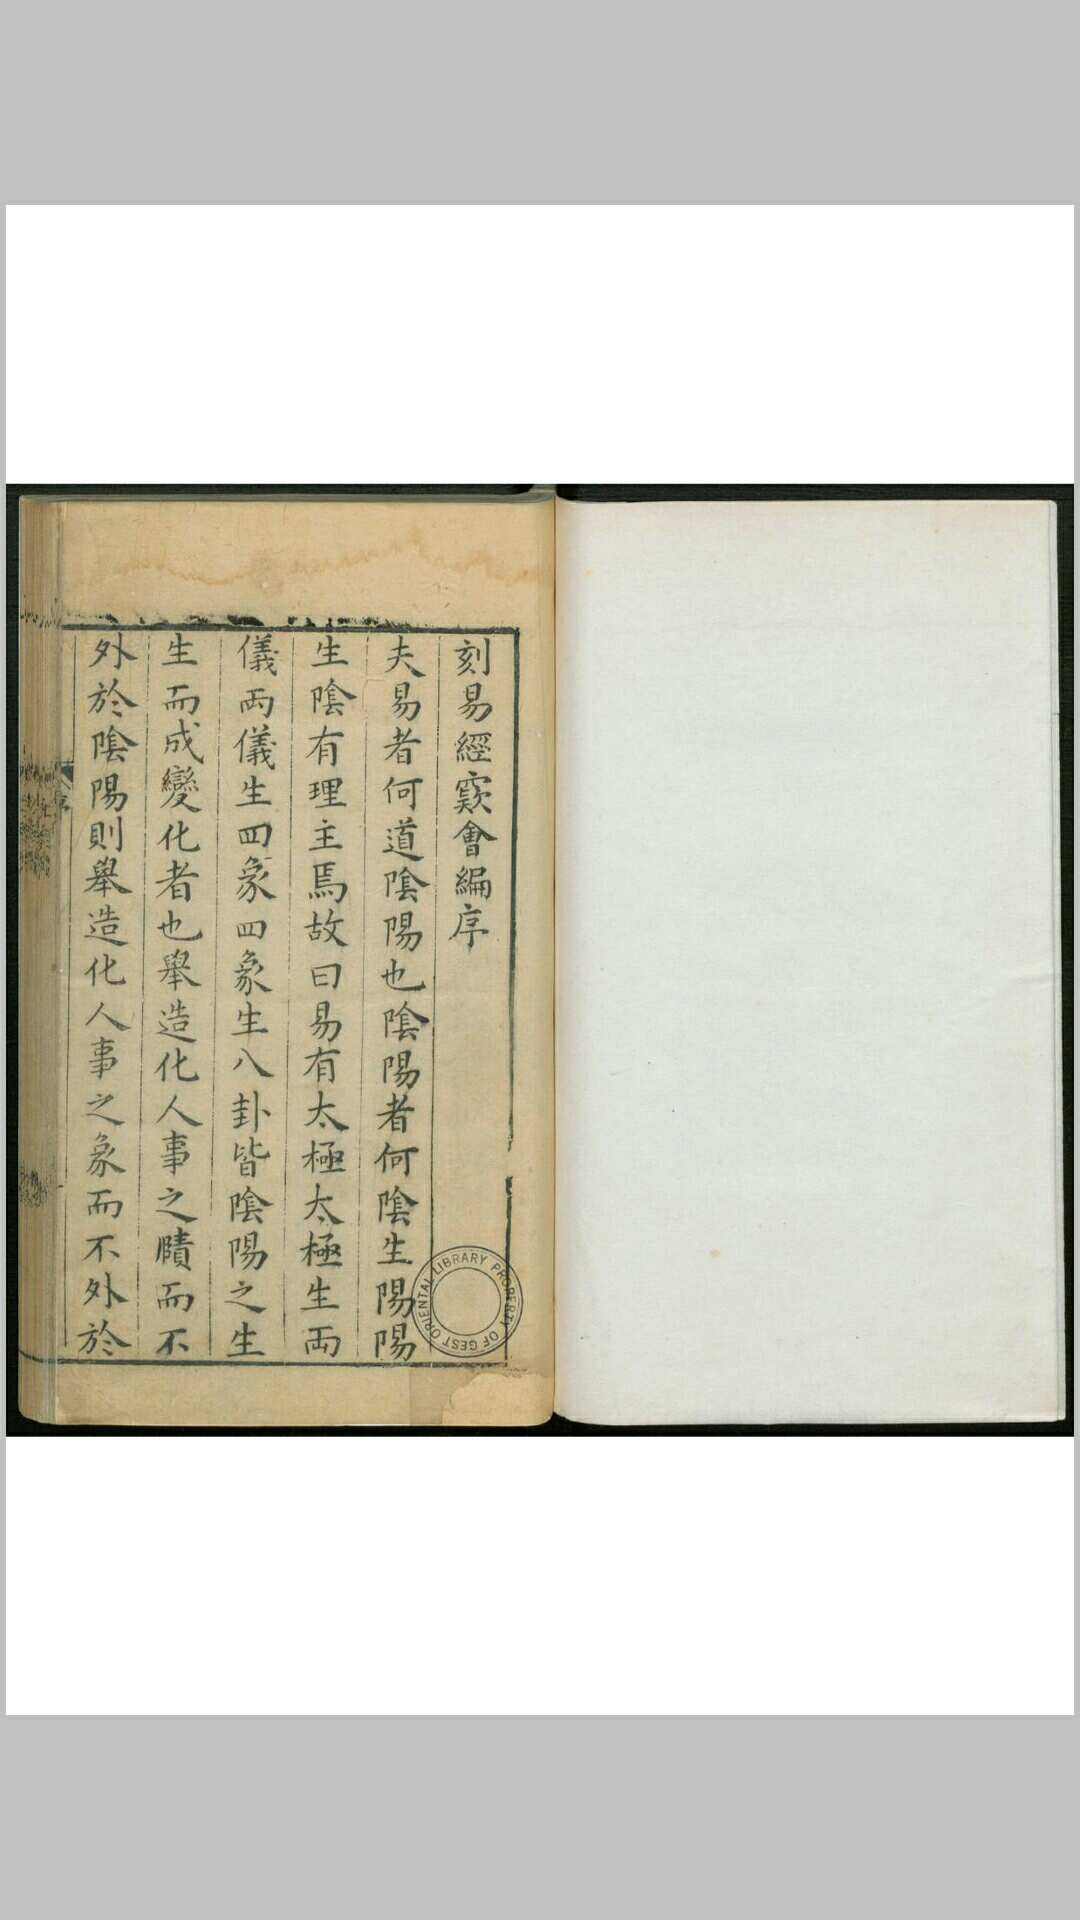 刻易經竅會編序
夫易者何道陰陽也陰陽者何陰生陽陽
生陰有理主焉故曰易有太極太極生兩
儀兩儀生四象四象生八卦皆陰陽之生
生而成變化者也舉造化人事之賾而不
外於陰陽則舉造化人事之象而不外於
序
ORIENTAL LIBRARY PROPERTY OF GEST